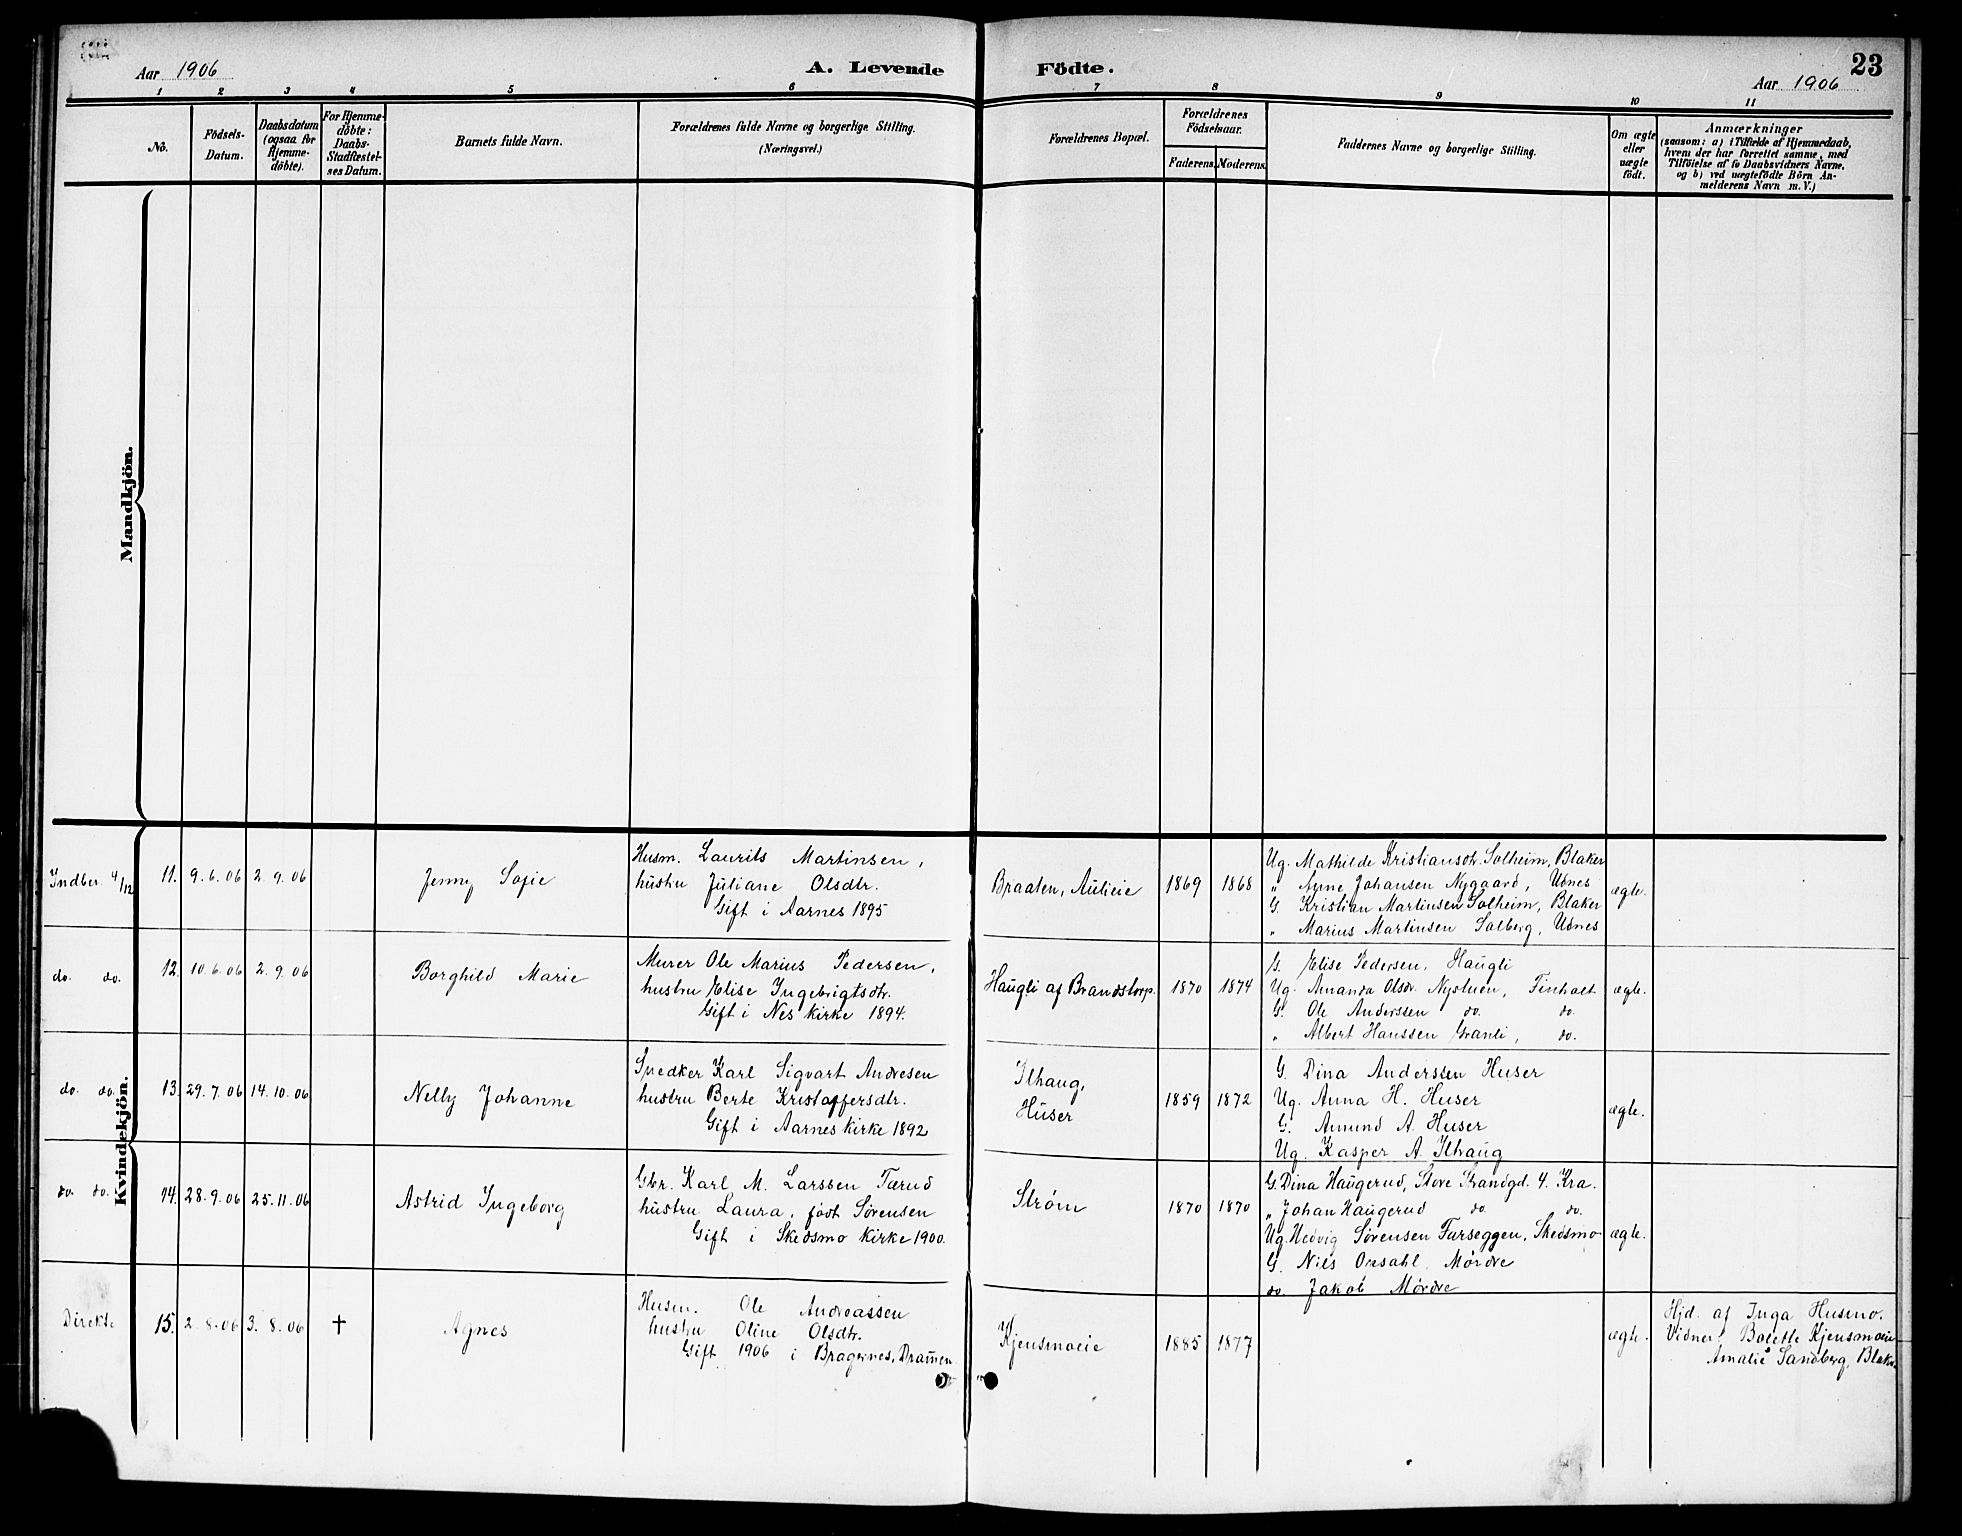 Aar 1906
A. Levende
Födte.
23
Aar 1906
1 2 3 4 5 6 7 8 9 10 11
No.
Födsels-
Datum.
Daabsdatum
(ogsaa for
Hjemme-
döbte).
For Hjemme-
döbte:
Daabs-
Stadfæstel-
ses Datum.
Barnets fulde Navn.
Forældrenes fulde Navne og borgerlige Stilling.
(Næringsvei.)
Forældrenes Bopæl.
Forældrenes
Födselsaar.
Faderens. Moderens.
Faddernes Navne og borgerlige Stilling.
Om ægte
eller
uægte
födt.
Anmærkninger
(saasom: a) i Tilfælde af Hjemmedaab,
hvem der har forrettet samme, med
Tilföielse af to Daabsvidners Navne,
og b) ved uægtefödte Börn An-
melderens Navn m. V.)
Mandkjön.
Kvindekjön.
Indber. 4/12
11. 9.6.06 2.9.06
Jenny Sofie
Husm. Laurits Martinsen,
hustru Juliane Olsdtr.
Gift i Aarnes 1895
Braaten, Aulieie
1869 1868
Ug. Mathilde Kristiansdtr. Solheim, Blaker
" Anne Johansen Nygaard, Udnes
G. Kristian Martinsen Solheim, Blaker
" Marius Martinsen Solberg, Udnes
ægte.
do. do.
12. 10.6.06 2.9.06
Borghild Marie
Murer Ole Marius Pedersen,
hustru Elise Ingebrigtsdtr.
Gift i Nes kirke 1894.
Haugli af Brandstorp.
1870 1874
G. Elise Pedersen, Haugli
Ug. Amanda Olsdr. Nystuen, Finholt
G. Ole Anderssen do. do.
" Albert Hanssen Granli, do.
ægte.
do. do.
13. 29.7.06 14.10.06
Nelly Johanne
Snedker Karl Sigvart Andresen
hustru Berte Kristoffersdtr.
Gift i Aarnes kirke 1892
Ilhaug,
Huser
1859 1872
G. Dina Anderssen Huser
Ug. Anna H. Huser
G. Amund A. Huser
Ug. Kasper A. Ilhaug
ægte.
do. do.
14. 28.9.06 25.11.06
Astrid Ingeborg
Gbr. Karl M. Larssen Tærud
hustru Laura, født Sørensen
Gift i Skedsmo kirke 1900.
Strøm
1870 1870
G. Dina Haugerud, Store Strandgd. 4. Kra.
" Johan Haugerud do. do.
Ug. Hedvig Sørensen Farseggen, Skedsmo
G. Nils Onsahl, Mørdre
do. Jakob Mørdre
ægte.
Direkte
15. 2.8.06 3.8.06 †
Agnes
Husm. Ole Andreassen
hustru Oline Olsdtr.
Gift 1906 i Bragernes, Dramen
Kjensmoeie
1885 1877
ægte.
Hjd. af Inga Husmo.
Vidner: Bolette Kjensmoeie
Amalie Sandberg, Blaker